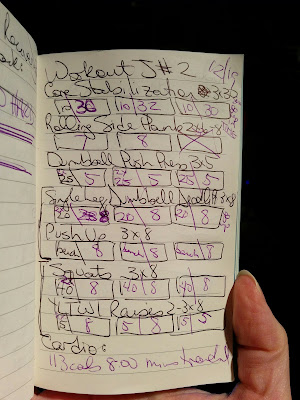 Workout J#2 12/19
Core Stabilization 3x30
10 30 10 32 10 30
Rolling Side Plank 2x6-8
7 8
Dumbbell Push Press 3x5
25 5 25 5 25 5
Single Leg Dumbbell Deadlift 3x8
20 8 20 8 20 8
Push Up 3x8
8 8 8
Squats 3x8
40 8 40 8 40 8
YTWL Raises 2-3x8
5 8 5 8 5 5
Cardio:
113 cals 8:00 mins treadmill